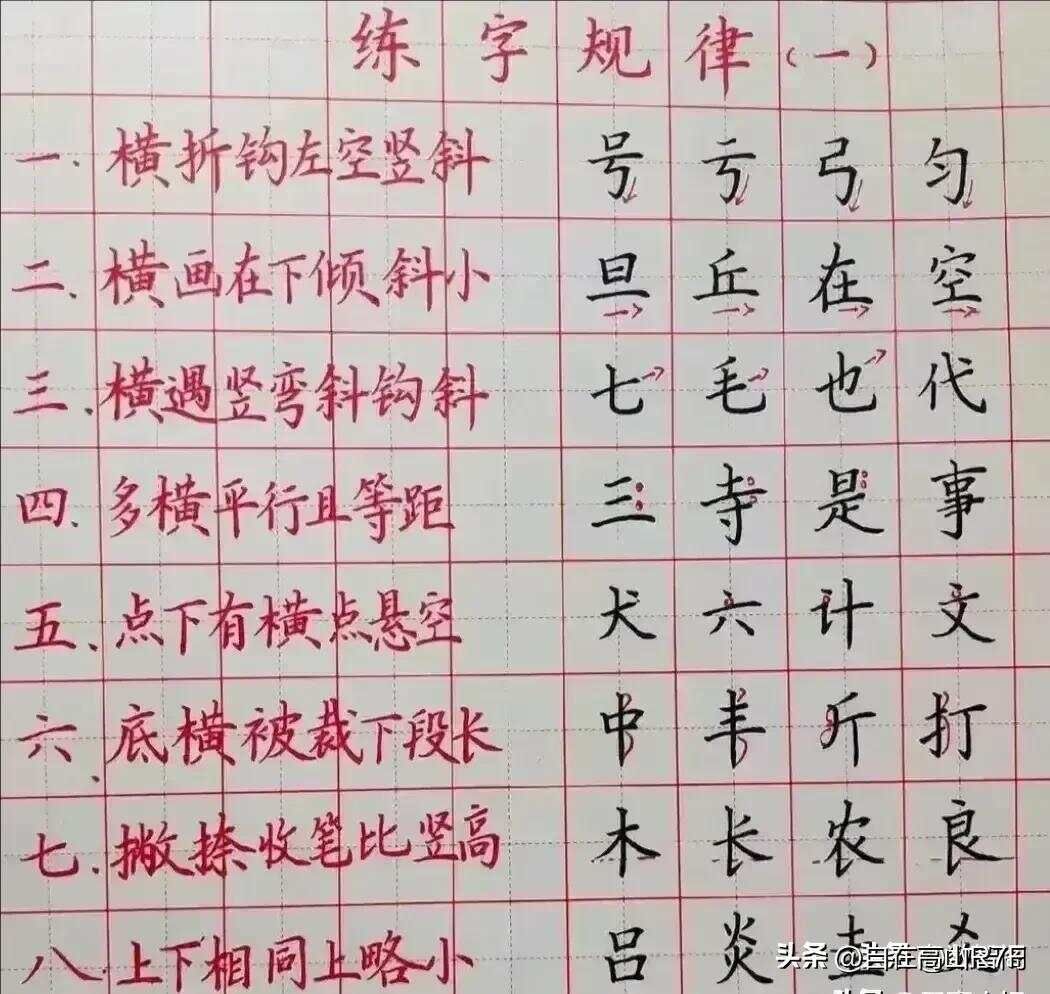 练字规律(一)
一.横折钩左空竖斜 号 亏 弓 匀
二、横画在下倾斜小 旦 丘 在 空
三.横遇竖弯斜钩斜 七 毛 也 代
四、多横平行且等距 三 寺 是 事
五、点下有横点悬空 犬 六 计 文
六、底横被裁下段长 中 丰 斤 打
七.撇捺收笔比竖高 木 长 农 良
八、上下相同上略小 吕 炎 圭
头条